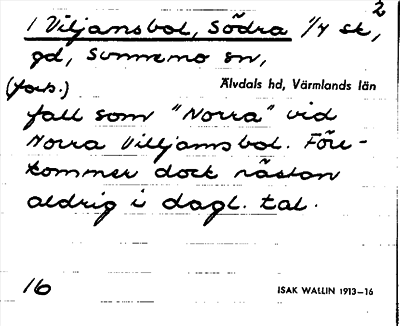 2
1 Viljansbol, Södra 1/4 sk,
gd, Sunnemo sn,
(forts.) Älvdals hd, Värmlands län
fall som "Norra" vid
Norra Villjamsbol. Före-
kommer dock nästan
aldrig i dagl. tal.
16 ISAK WALLIN 1913–16